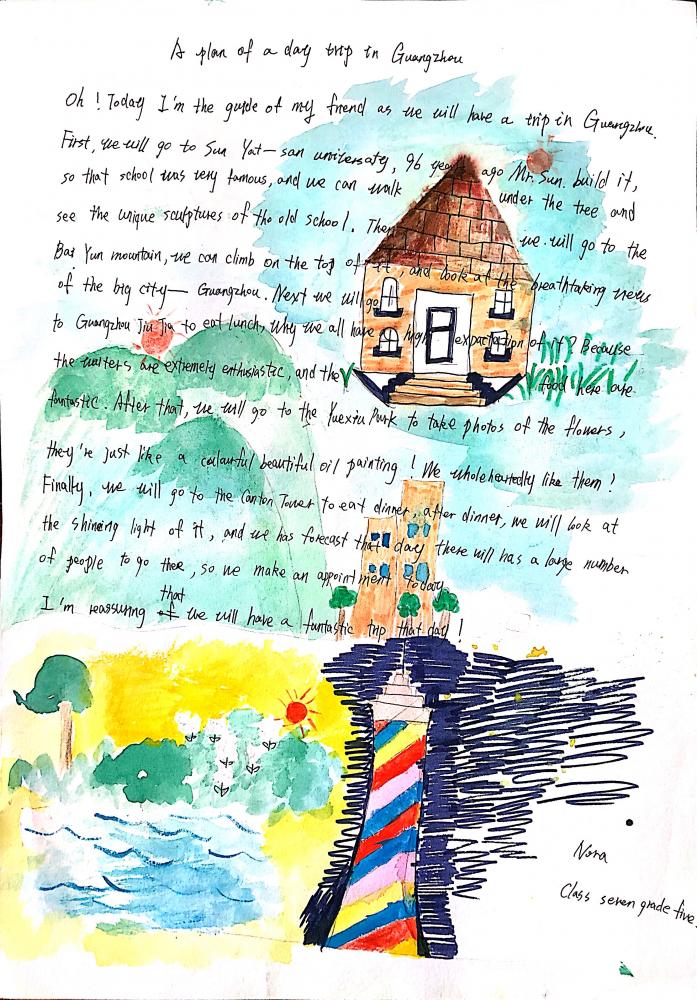 A plan of a day trip in Guangzhou
Oh! Today I'm the guide of my friend as we will have a trip in Guangzhou.
First, we will go to Sun Yat-san universaty, 96 years ago Mr. Sun. build it,
so that school was very famous, and we can walk under the tree and
see the unique sculptures of the old school. Then we will go to the
Bai Yun mountain, we can climb on the top of it, and look at the breathtaking views
of the big city— Guangzhou. Next we will go
to Guangzhou Jiu Jia to eat lunch, why we all have high expactation of it? Because
the waiters are extremely enthusiastic, and the food here are
fantastic. After that, we will go to the Yuexiu Park to take photos of the flowers,
they're just like a colourful beautiful oil painting! We wholeheartedly like them!
Finally, we will go to the Canton Tower to eat dinner, after dinner, we will look at
the shineing light of it, and we has forecast that day there will has a large number
of people to go there, so we make an appointment today.
I'm reassuring that we will have a fantastic trip that day!
Nora
Class seven grade five.